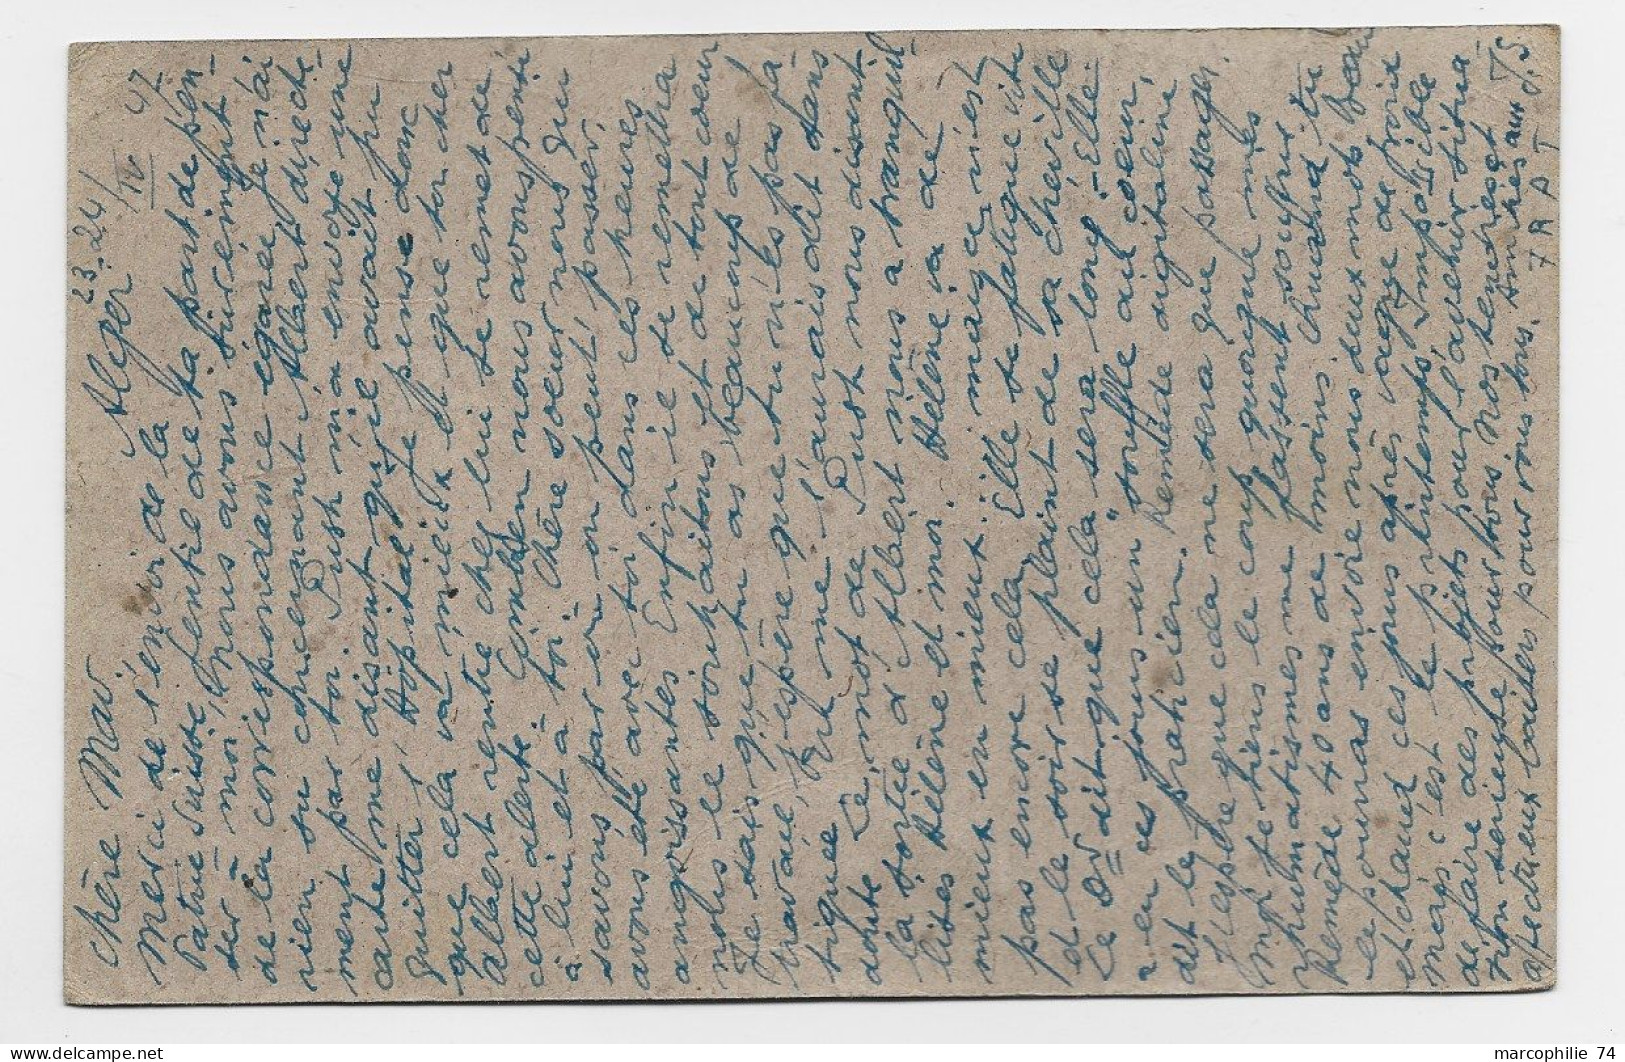 Alger 23.24/IV 47
Chère Mav.
Merci de l'envoi de la
Patrie Suisse, gentil de ta part de pen-
ser à moi, nous avons sûrement
de la correspondance égarée, je n'ai
rien eu concernant Albert directe-
ment par toi. Pust m'a envoyé une
carte me disant qu'il avait pu
quitter l'Hôpital, je pense donc
que cela va mieux et que ton cher
Albert rentré chez lui se remet de
cette alerte. Combien nous avons pensé
à lui et à toi chère soeur, nous qui
savons par où on peut passer,
avons été avec toi dans ces heures
angoissantes. Enfin il se remettra
nous le souhaitons et de tout coeur
Je sais que tu as beaucoup de
travail, j'espère que tu n'es pas fa-
tiguée. Pust me l'aurais dit sans
doute. Le mot de Pust nous disant
la sortie d'Albert nous a tranquil-
lisés Hélène et moi. Hélène va de
mieux en mieux. Elle mange n'est
pas encore cela. Elle se fatigue vite
et le soir se plaint de sa cheville
Le Dr dit que cela sera long. Elle
a eu ces jours un "souffle au coeur,
dit le praticien. Remède digitaline
J'espère que cela ne sera que passager.
Moi je tiens le coup quoique mes
rhumatismes me fassent souffrir
Remède 40 ans de moins! Quand tu
le pourras envoie nous deux mots. Beau
et chaud ces jours après vague de froid
mais c'est le printemps. Impossible
de faire des projets pour l'avenir situa-
tion sérieuse pour tous. Nos tendres et
affectueux baisers pour vous tous. Amitiés aux
marcophilie 74